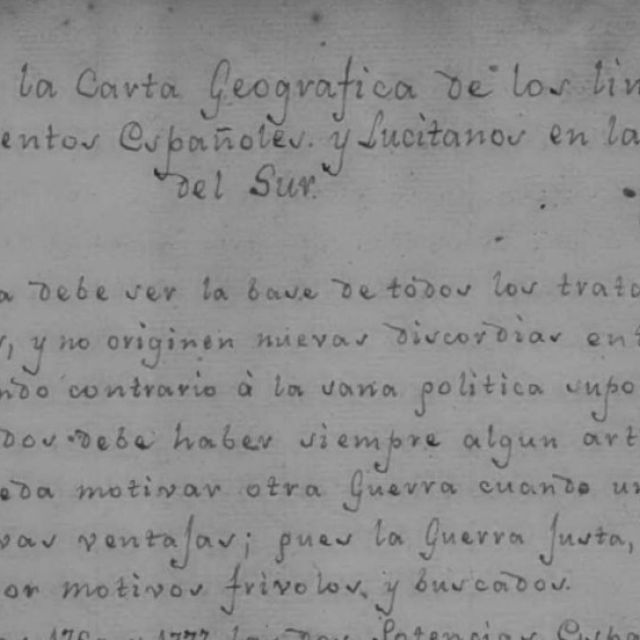 la Carta Geografica de los lin
entos Españoles. y Lucitanos en la
del Sur.
a debe ser la base de todos los trata
s, y no originen nuevas discordias ent
ndo contrario à la sana politica supo
dos debe haber siempre algun art
eda motivar otra Guerra cuando un
vas ventajas; pues la Guerra justa,
or motivos frivolos, y buscados.
y 1777 las dos Potencias